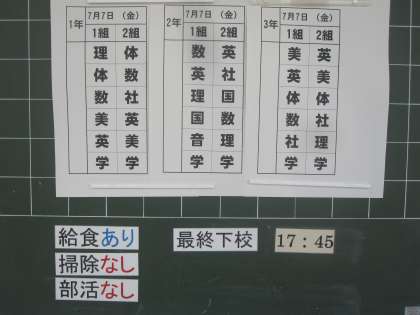 1年 7月7日 (金)
1組 2組
理 体
体 数
数 社
美 英
英 美
学 学
2年 7月7日 (金)
1組 2組
数 英
英 社
理 国
国 数
音 理
学 学
3年 7月7日 (金)
1組 2組
美 英
英 美
体 体
数 数
社 理
学 学
給食あり 最終下校 17:45
掃除なし
部活なし